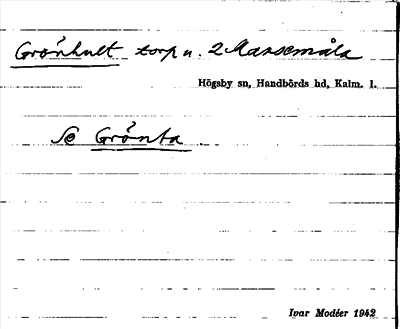 Grönhult torp u. 2 Massemåla
Högsby sn, Handbörds hd, Kalm. l.
Se Grönta
Ivar Modéer 1942